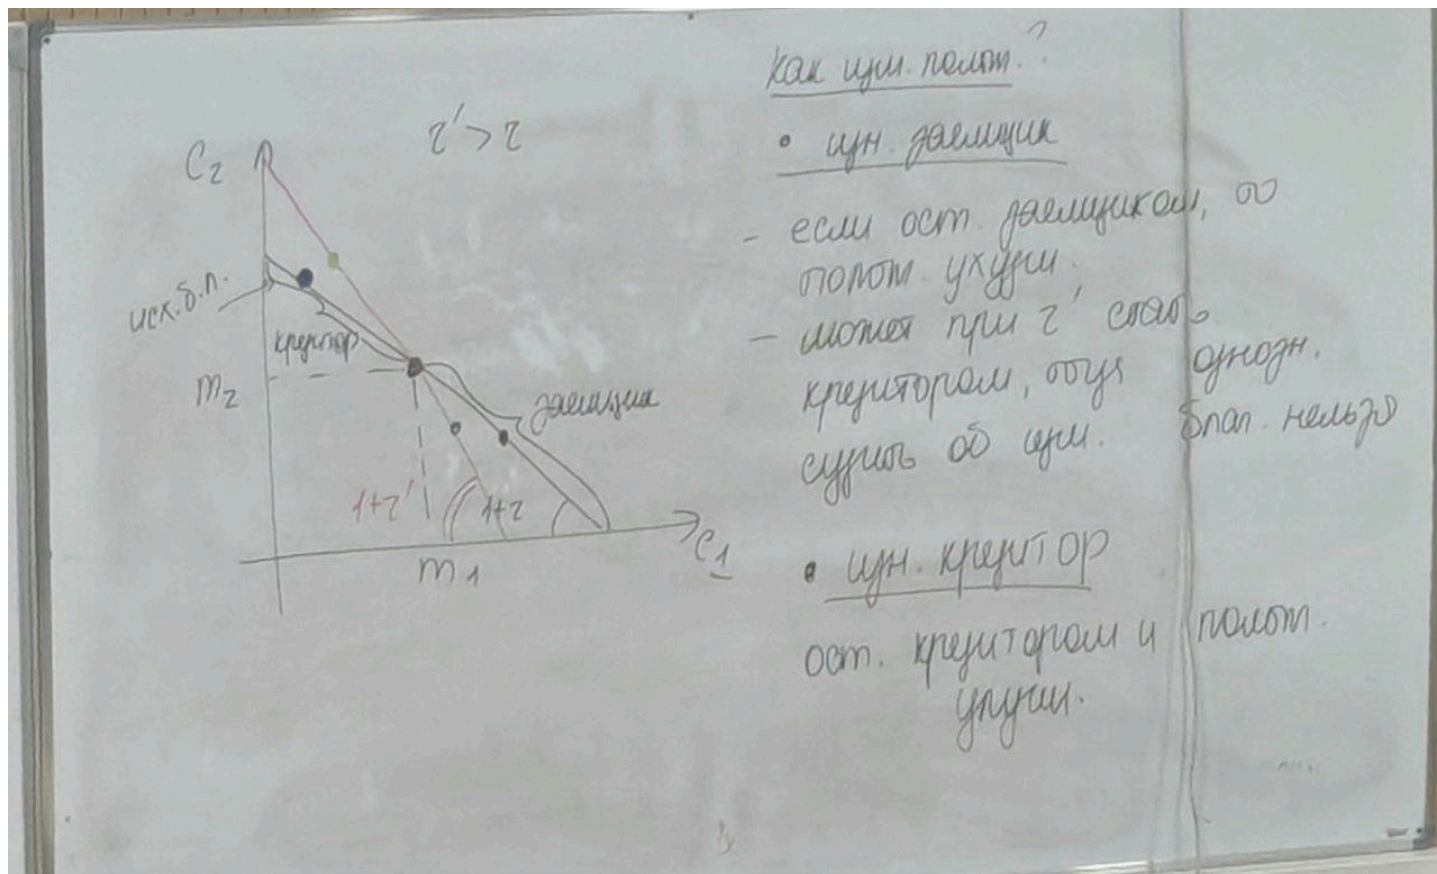 C₂
r' > r
исх. б.л.
кредитор
m₂
заемщик
1+r'
1+r
m₁
C₁
Как изм. полож.?
• изн. заемщик
- если ост. заемщиком, то
полож. ухудш.
- может при r' стать
кредитором, тогда однозн.
судить об изм. благ. нельзя
• изн. кредитор
ост. кредитором и полож.
улучш.